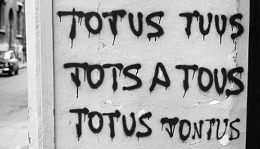 TOTUS TUUS
TOTS A TOUS
TOTUS TONTUS